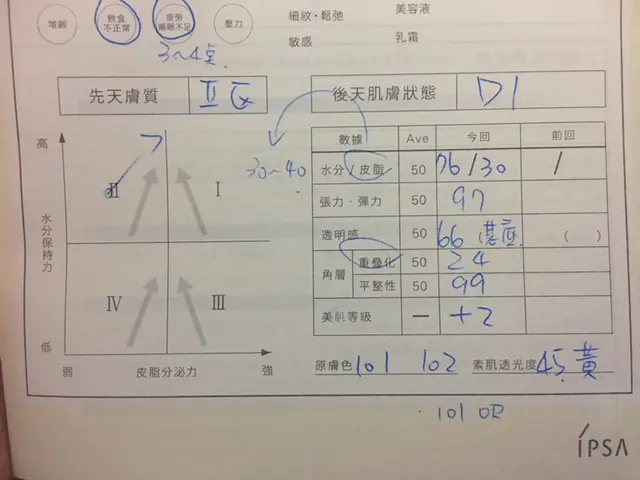 增齡 飲食不正常 疲勞睡眠不足 壓力
細紋・鬆弛 美容液
敏感 乳霜
3~4桌.
先天膚質 II
後天肌膚狀態 D1
30~40
數據 Ave 今回 前回
水分/皮脂 50 76/30 /
張力・彈力 50 97
透明感 50 66 ( )
角層 重疊化 50 24
平整性 50 99
美肌等級 — +2
高
水分保持力
低
II I
IV III
弱 皮脂分泌力 強
原膚色 101 102 素肌透光度 45. 黃
101 OR
IPSA